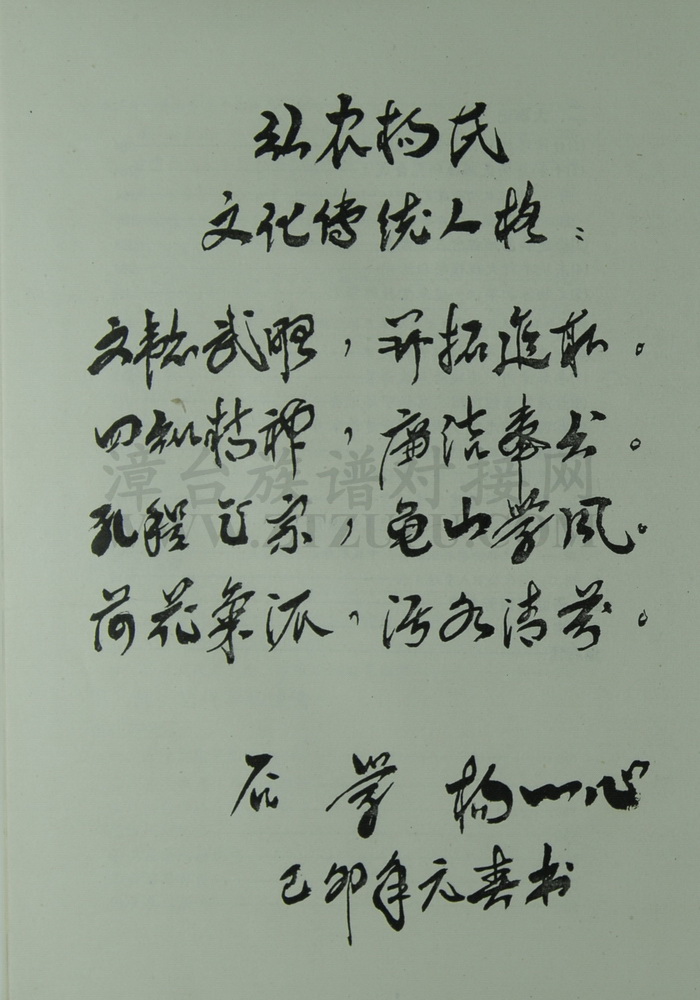 弘农杨氏
文化傳统人格：
文韜武略，开拓進取。
四知精神，廉洁奉公。
孔程正宗，龟山学风。
荷花氣派，污水清芬。
后学 杨一心
己卯年元春书
漳台族谱对接网
WWW.ZTZUPU.COM